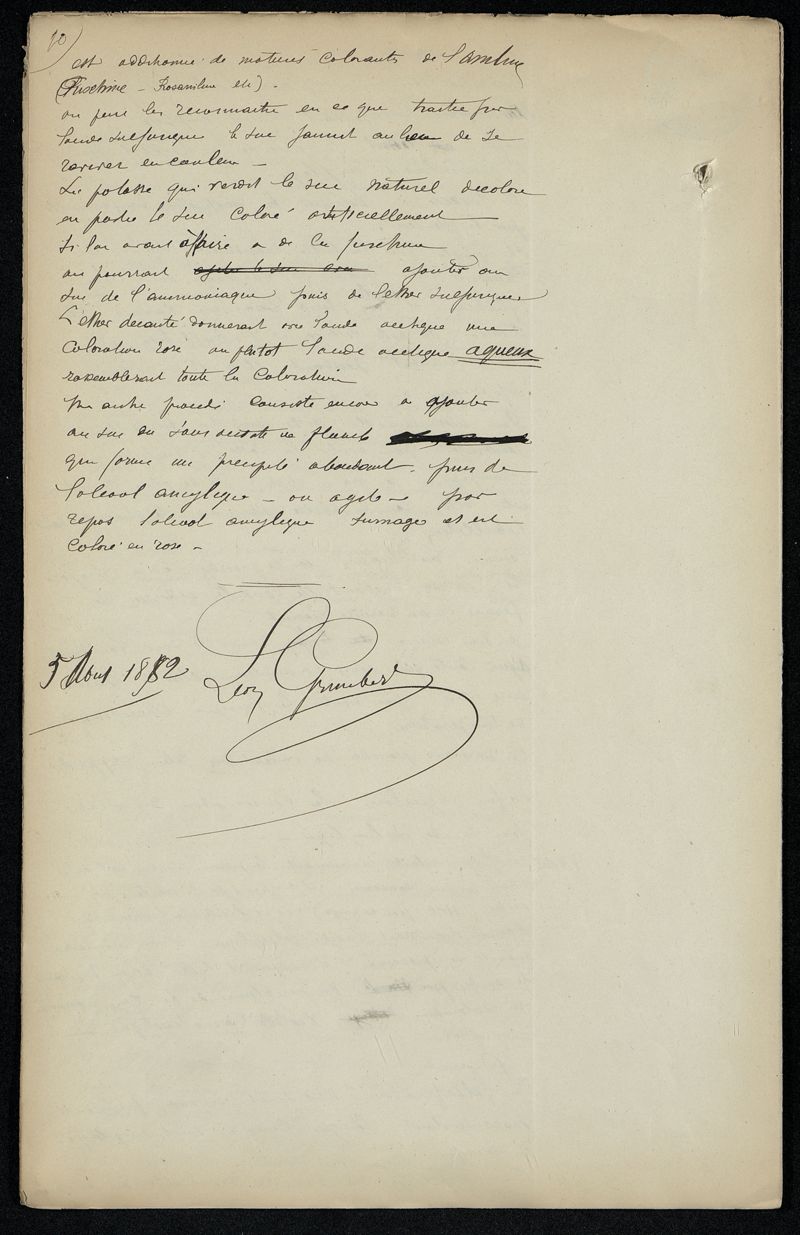 10)
est additionné de matières colorants de l'aniline
(Fuschine - Rosaniline etc) -
on peut les reconnaitre en ce que traité par
l'acide sulfurique le suc jaunit au lieu de se
raviver en couleur -
La potasse qui verdit le suc naturel decolore
en partie le suc coloré artificiellement
Si l'on avait affaire a de la fuschine
on pourrait ajouter au
suc de l'ammoniaque puis de l'ether sulfurique
L'ether decanté donnerait avec l'acide acetique une
coloration rose ou plutot l'acide acetique aqueux
rassemblerait toute la coloration
Un autre procédé consiste encore a ajouter
au suc du sous acetate de plomb
qui forme un precipité abondant, puis de
l'alcool amylique - on agite - par
repos l'alcool amylique surnage et est
coloré en rose -
5 Aout 1882 Leon Grimbert